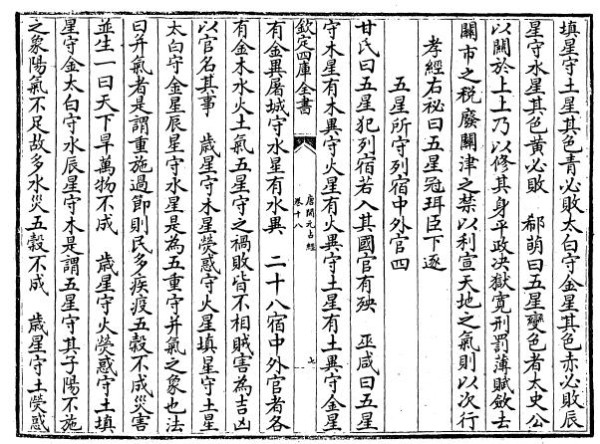 填星守土星其色青必敗太白守金星其色赤必敗辰
星守水星其色黃必敗　郗萌曰五星變色者太史公
以闗於上上乃以修其身平政決獄寛刑罰薄賦斂去
闗市之税廢闗津之禁以利宣天地之氣則以次行
孝經右秘曰五星冠珥臣下逐
五星所守列宿中外官四
甘氏曰五星犯列宿若入其國官有殃　巫咸曰五星
守木星有木異守火星有火異守土星有土異守金星
欽定四庫全書
唐開元占經
卷十八
七
有金異屠城守水星有水異　二十八宿中外官者各
有金木水火土氣五星守之禍敗皆不相賊害為吉凶
以官名其事　歳星守木星熒惑守火星填星守土星
太白守金星辰星守水星是為五重守并氣之象也法
曰并氣者是謂重施過節則民多疾疫五穀不成災害
並生一曰天下旱萬物不成　歳星守火熒惑守土填
星守金太白守水辰星守木是謂五星守其子陽不施
之象陽氣不足故多水災五穀不成　歳星守土熒惑